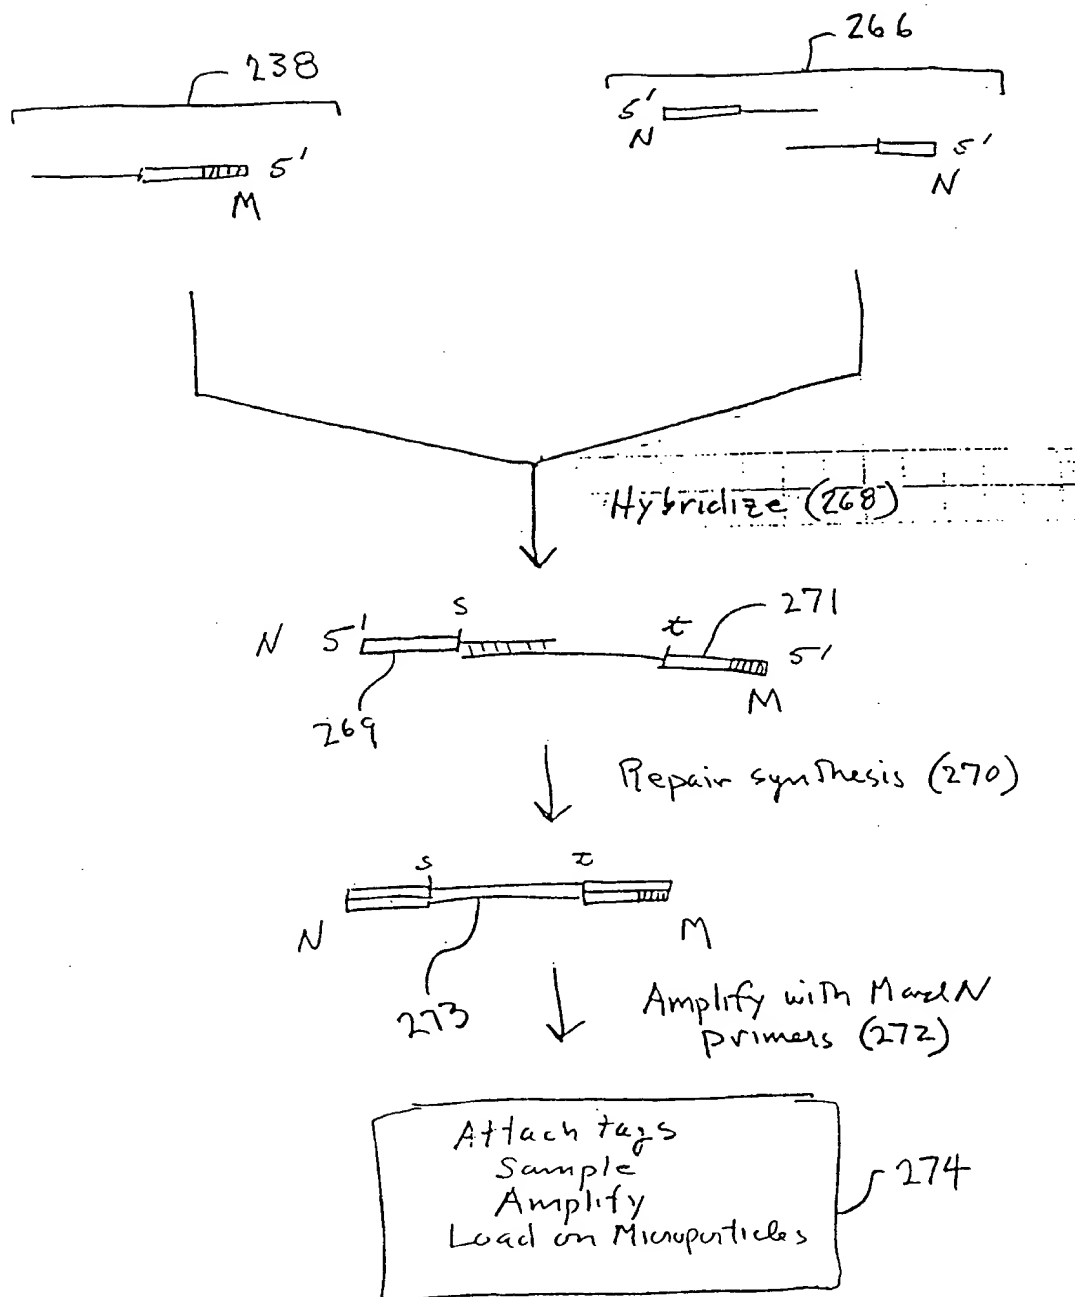 238
266
5'
N
5'
N
5'
M
Hybridize (268)
s
271
N 5'
t
5'
M
269
Repair synthesis (270)
s
t
N
M
273
Amplify with M and N
primers (272)
Attach tags
Sample
Amplify
Load on Microparticles
274